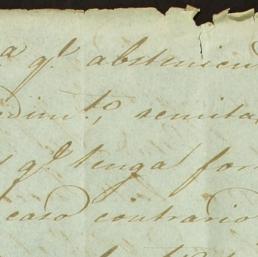 a q.e abstenien
edim.to, remita
s q.e tenga for
caso contrario